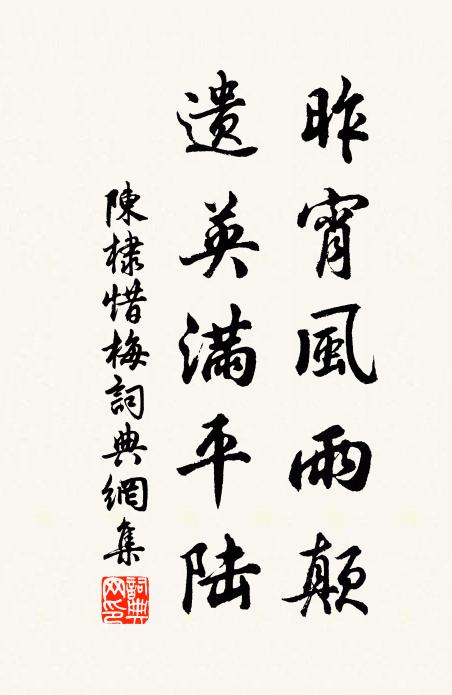 昨宵風雨顛
遺英滿平陆
陳棣惜梅詞典網集
詞典網印